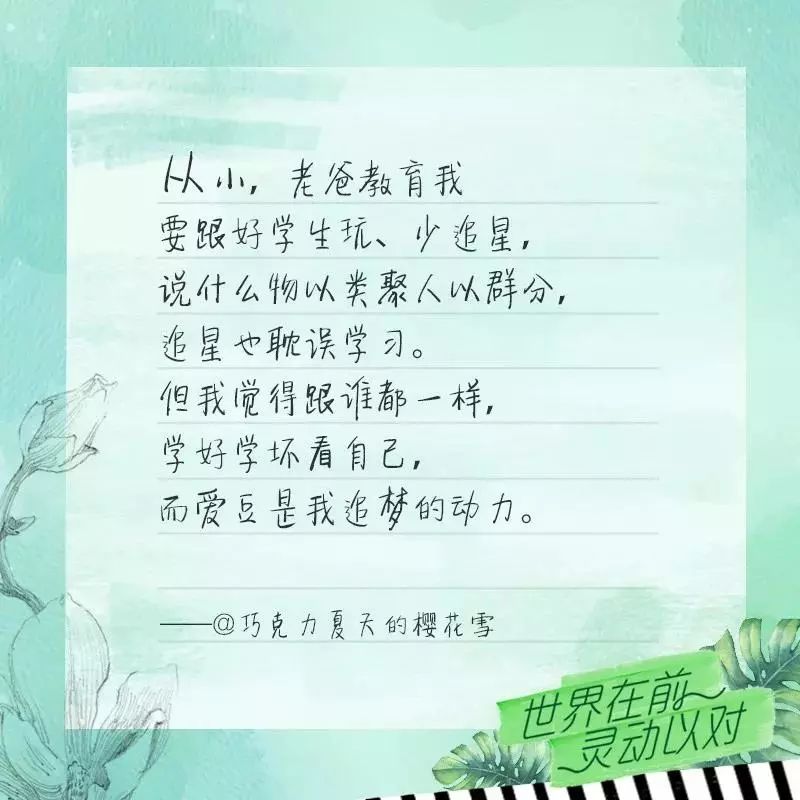 从小，老爸教育我
要跟好学生玩、少追星，
说什么物以类聚人以群分，
追星也耽误学习。
但我觉得跟谁都一样，
学好学坏看自己，
而爱豆是我追梦的动力。
——@巧克力夏天的樱花雪
世界在前
灵动以对